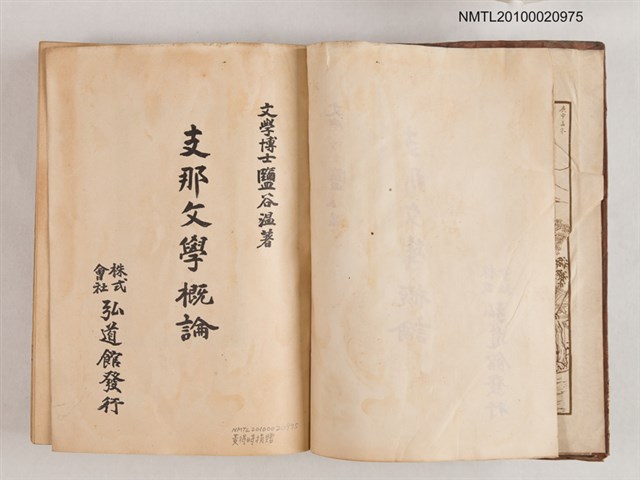 NMTL20100020975
文學博士鹽谷溫著
支那文學概論
株式會社 弘道館發行
NMTL20100020975